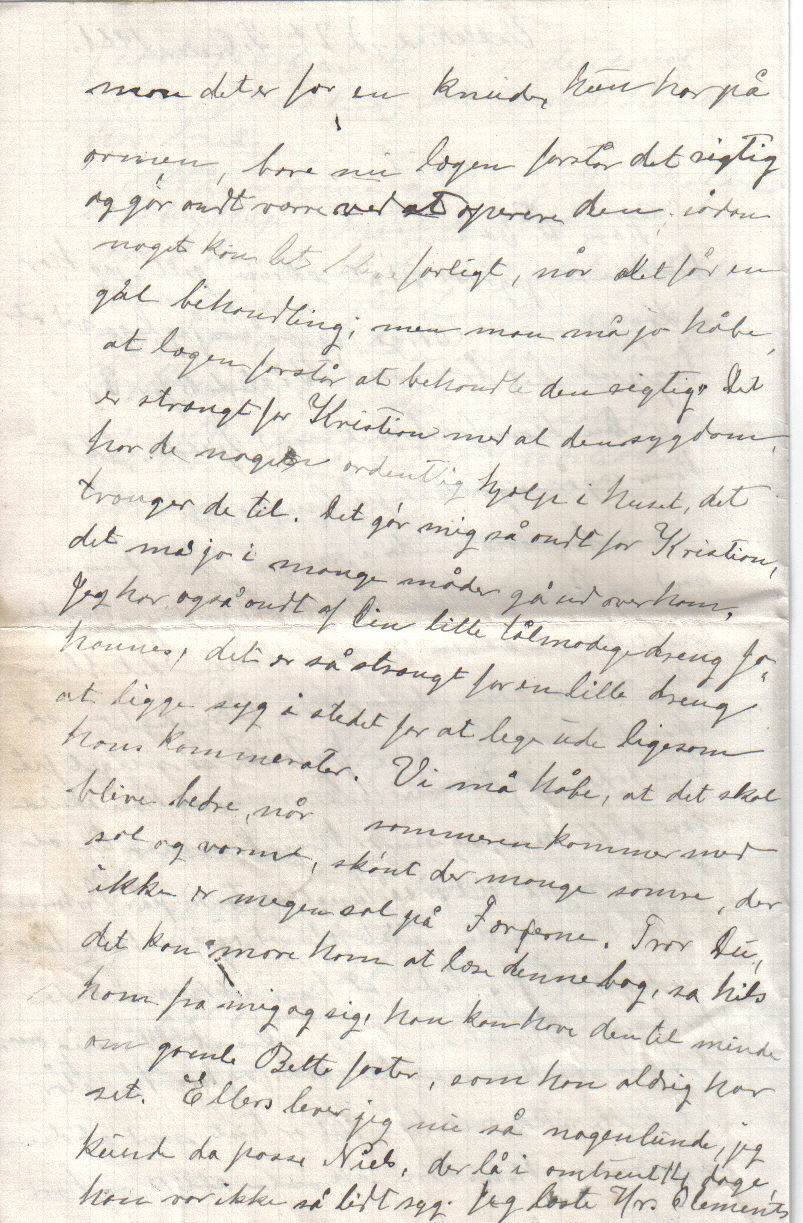 mon det er for en knude, hun har på
armen, bare nu lægen forstår det rigtig
og gør ondt værre ved at operere den, sådan
noget kan let blive farligt, når det får en
gal behandling; men man må jo håbe,
at lægen forstår at behandle den rigtig. Det
er strængt for Kristian med al den sygdom,
har de nogen ordentlig hjælp i huset, det
trænger de til. Det gør mig så ondt for Kristian,
det må jo i mange måder gå ud over ham.
Jeg har også ondt af Din lille tålmodige dreng Jo-
hannes, det er så strængt for en lille dreng
at ligge syg i stedet for at lege ude ligesom
hans kammerater. Vi må håbe, at det skal
blive bedre, når sommeren kommer med
sol og varme, skønt der mange somre, der
ikke er megen sol på Færøerne. Tror Du,
det kan more ham at læse denne bog, så hils
ham fra mig og sig, han kan have den til minde
om gamle Bette faster, som han aldrig har
set. Ellers lever jeg nu så nogenlunde, jeg
kunde da passe Niels, der lå i omtrent 14 dage,
han var ikke så lidt syg. Jeg læste Mrs Clements